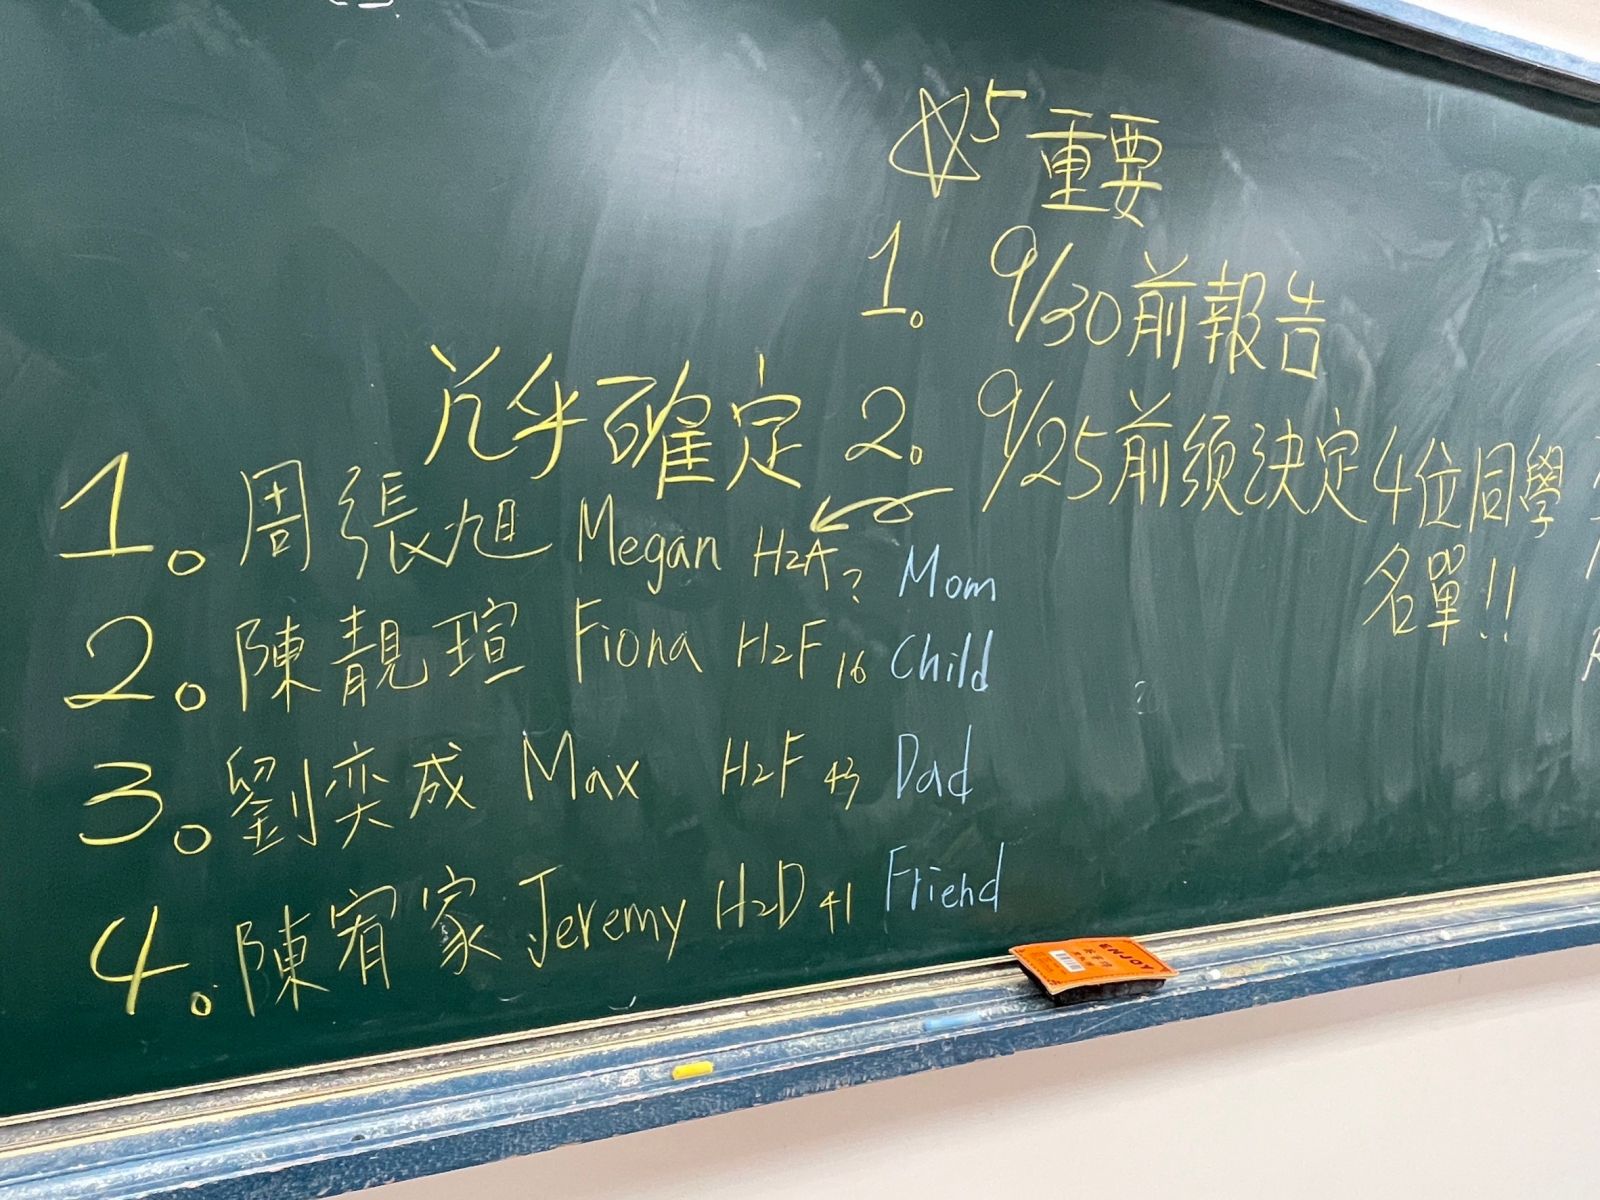 ☆5 重要
1. 9/30前報告
2. 9/25前須決定4位同學
名單!!
几乎確定
1. 周張旭 Megan H2A ? Mom
2. 陳靚瑄 Fiona H2F 16 Child
3. 劉奕成 Max H2F 43 Dad
4. 陳宥家 Jeremy H2D 41 Friend
ENJOY